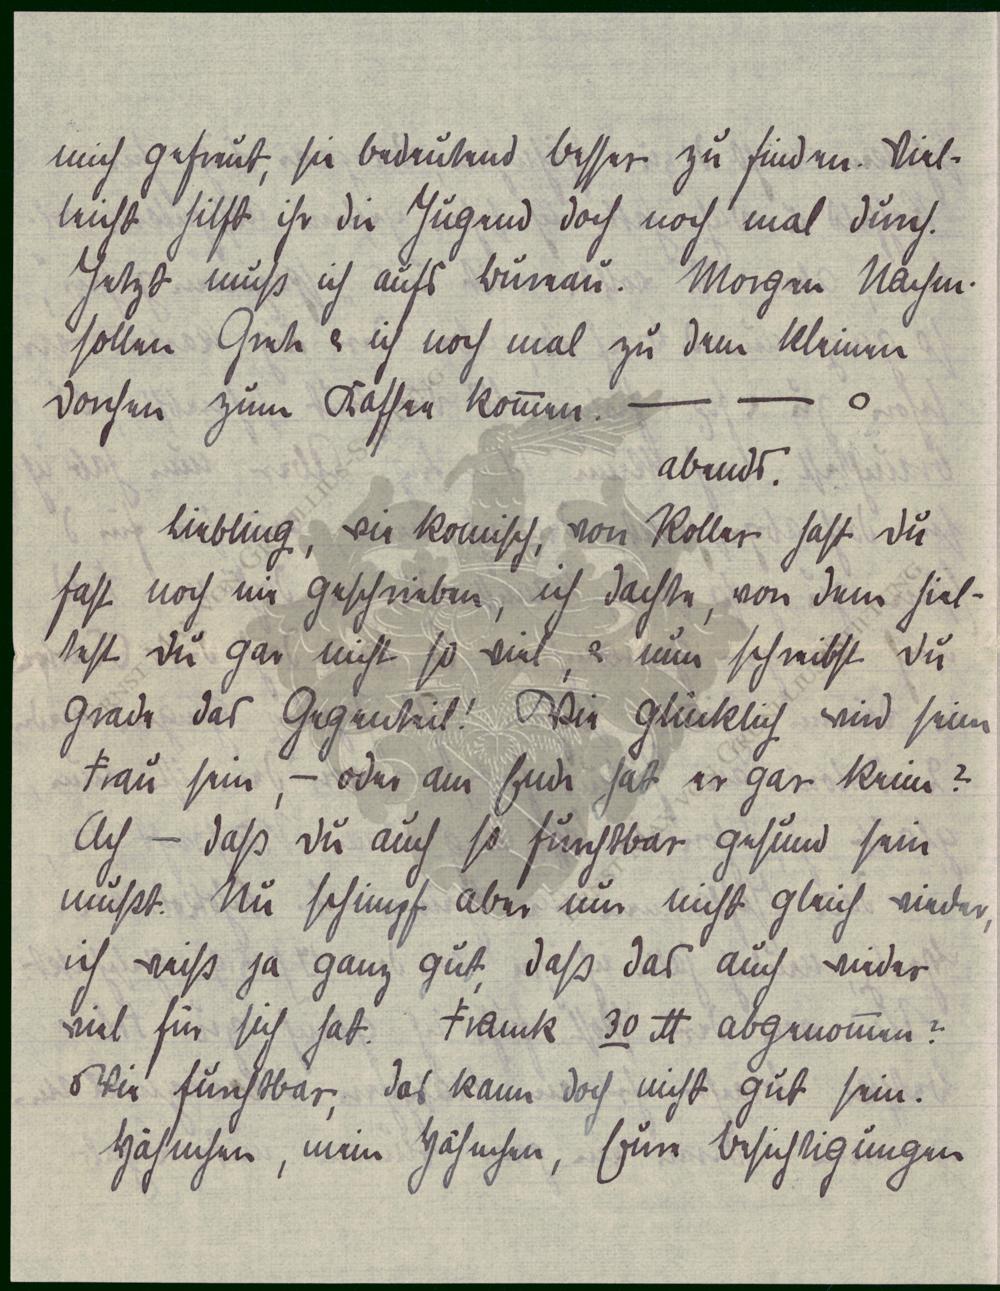 mich gefreut, sie bedeutend besser zu finden. Viel-
leicht hilft ihr die Jugend doch noch mal durch.
Jetzt muß ich aufs Bureau. Morgen Nachm.
sollen Greth & ich noch mal zu dem kleinen
Dorchen zum Kaffee kom̅en. — — o
abends.
Liebling, wie komisch, von Koller hast Du
fast noch nie geschrieben, ich dachte, von dem hiel-
test Du gar nicht so viel, & nun schreibst Du
grade das Gegenteil! Wie glücklich wird seine
Frau sein, – oder am Ende hat er gar keine?
Ach – daß Du auch so furchtbar gesund sein
mußt. Nu schimpf aber nur nicht gleich wieder,
ich weiß ja ganz gut, daß das auch wieder
viel für sich hat. Frank 30 ℔ abgenom̅en?
Wie furchtbar, das kann doch nicht gut sein.
Hähnchen, mein Hähnchen, Eure Besichtigungen